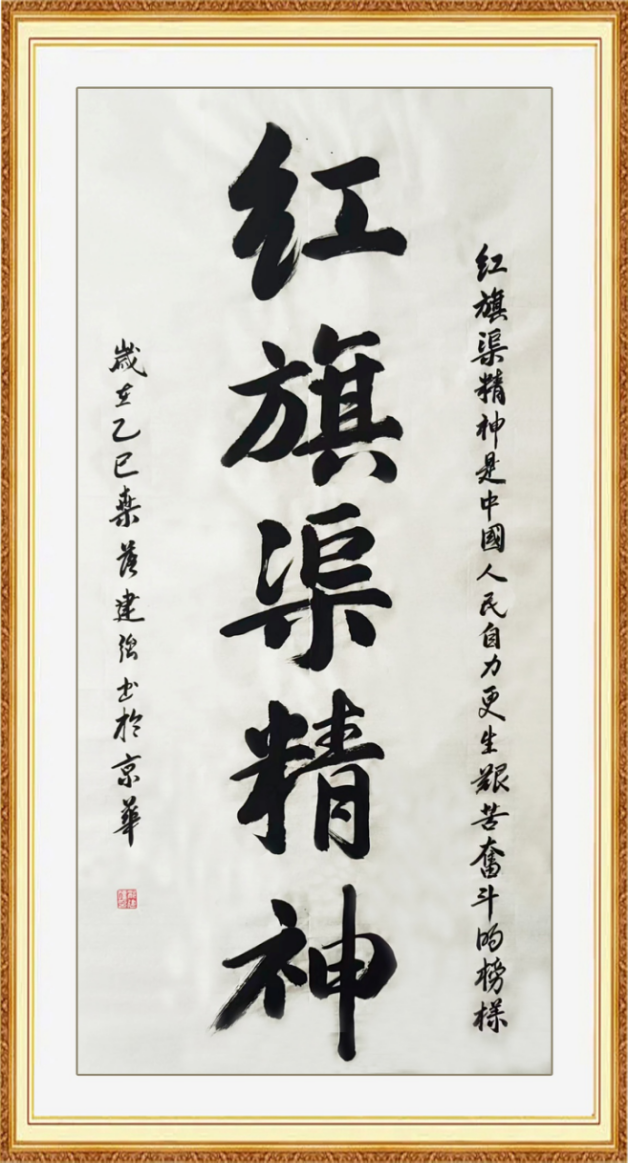 红旗渠精神是中國人民自力更生艱苦奮斗的榜樣
红旗渠精神
歲在乙巳桑落建強书於京華